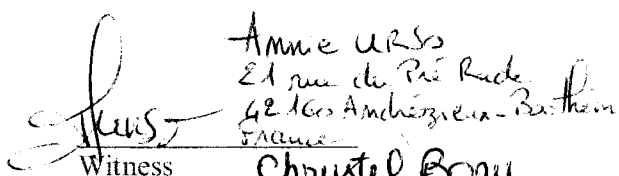 Annie URSO
21 rue du Pré Rude
42160 Andrézieux-Bouthéon
France
Witness
Christel Bony